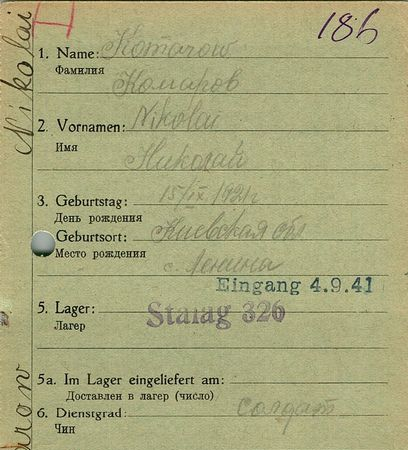 186
1. Name: Komarow
Фамилия
Комаров
2. Vornamen: Nikolai
Имя
Николай
3. Geburtstag: 15/IX 1921 г
День рождения
Geburtsort: Киевская обл
Место рождения
с. Ленина
Eingang 4.9.41
5. Lager: Stalag 326
Лагер
5a. Im Lager eingeliefert am:
Доставлен в лагер (число)
6. Dienstgrad: солдат
Чин
Nikolai